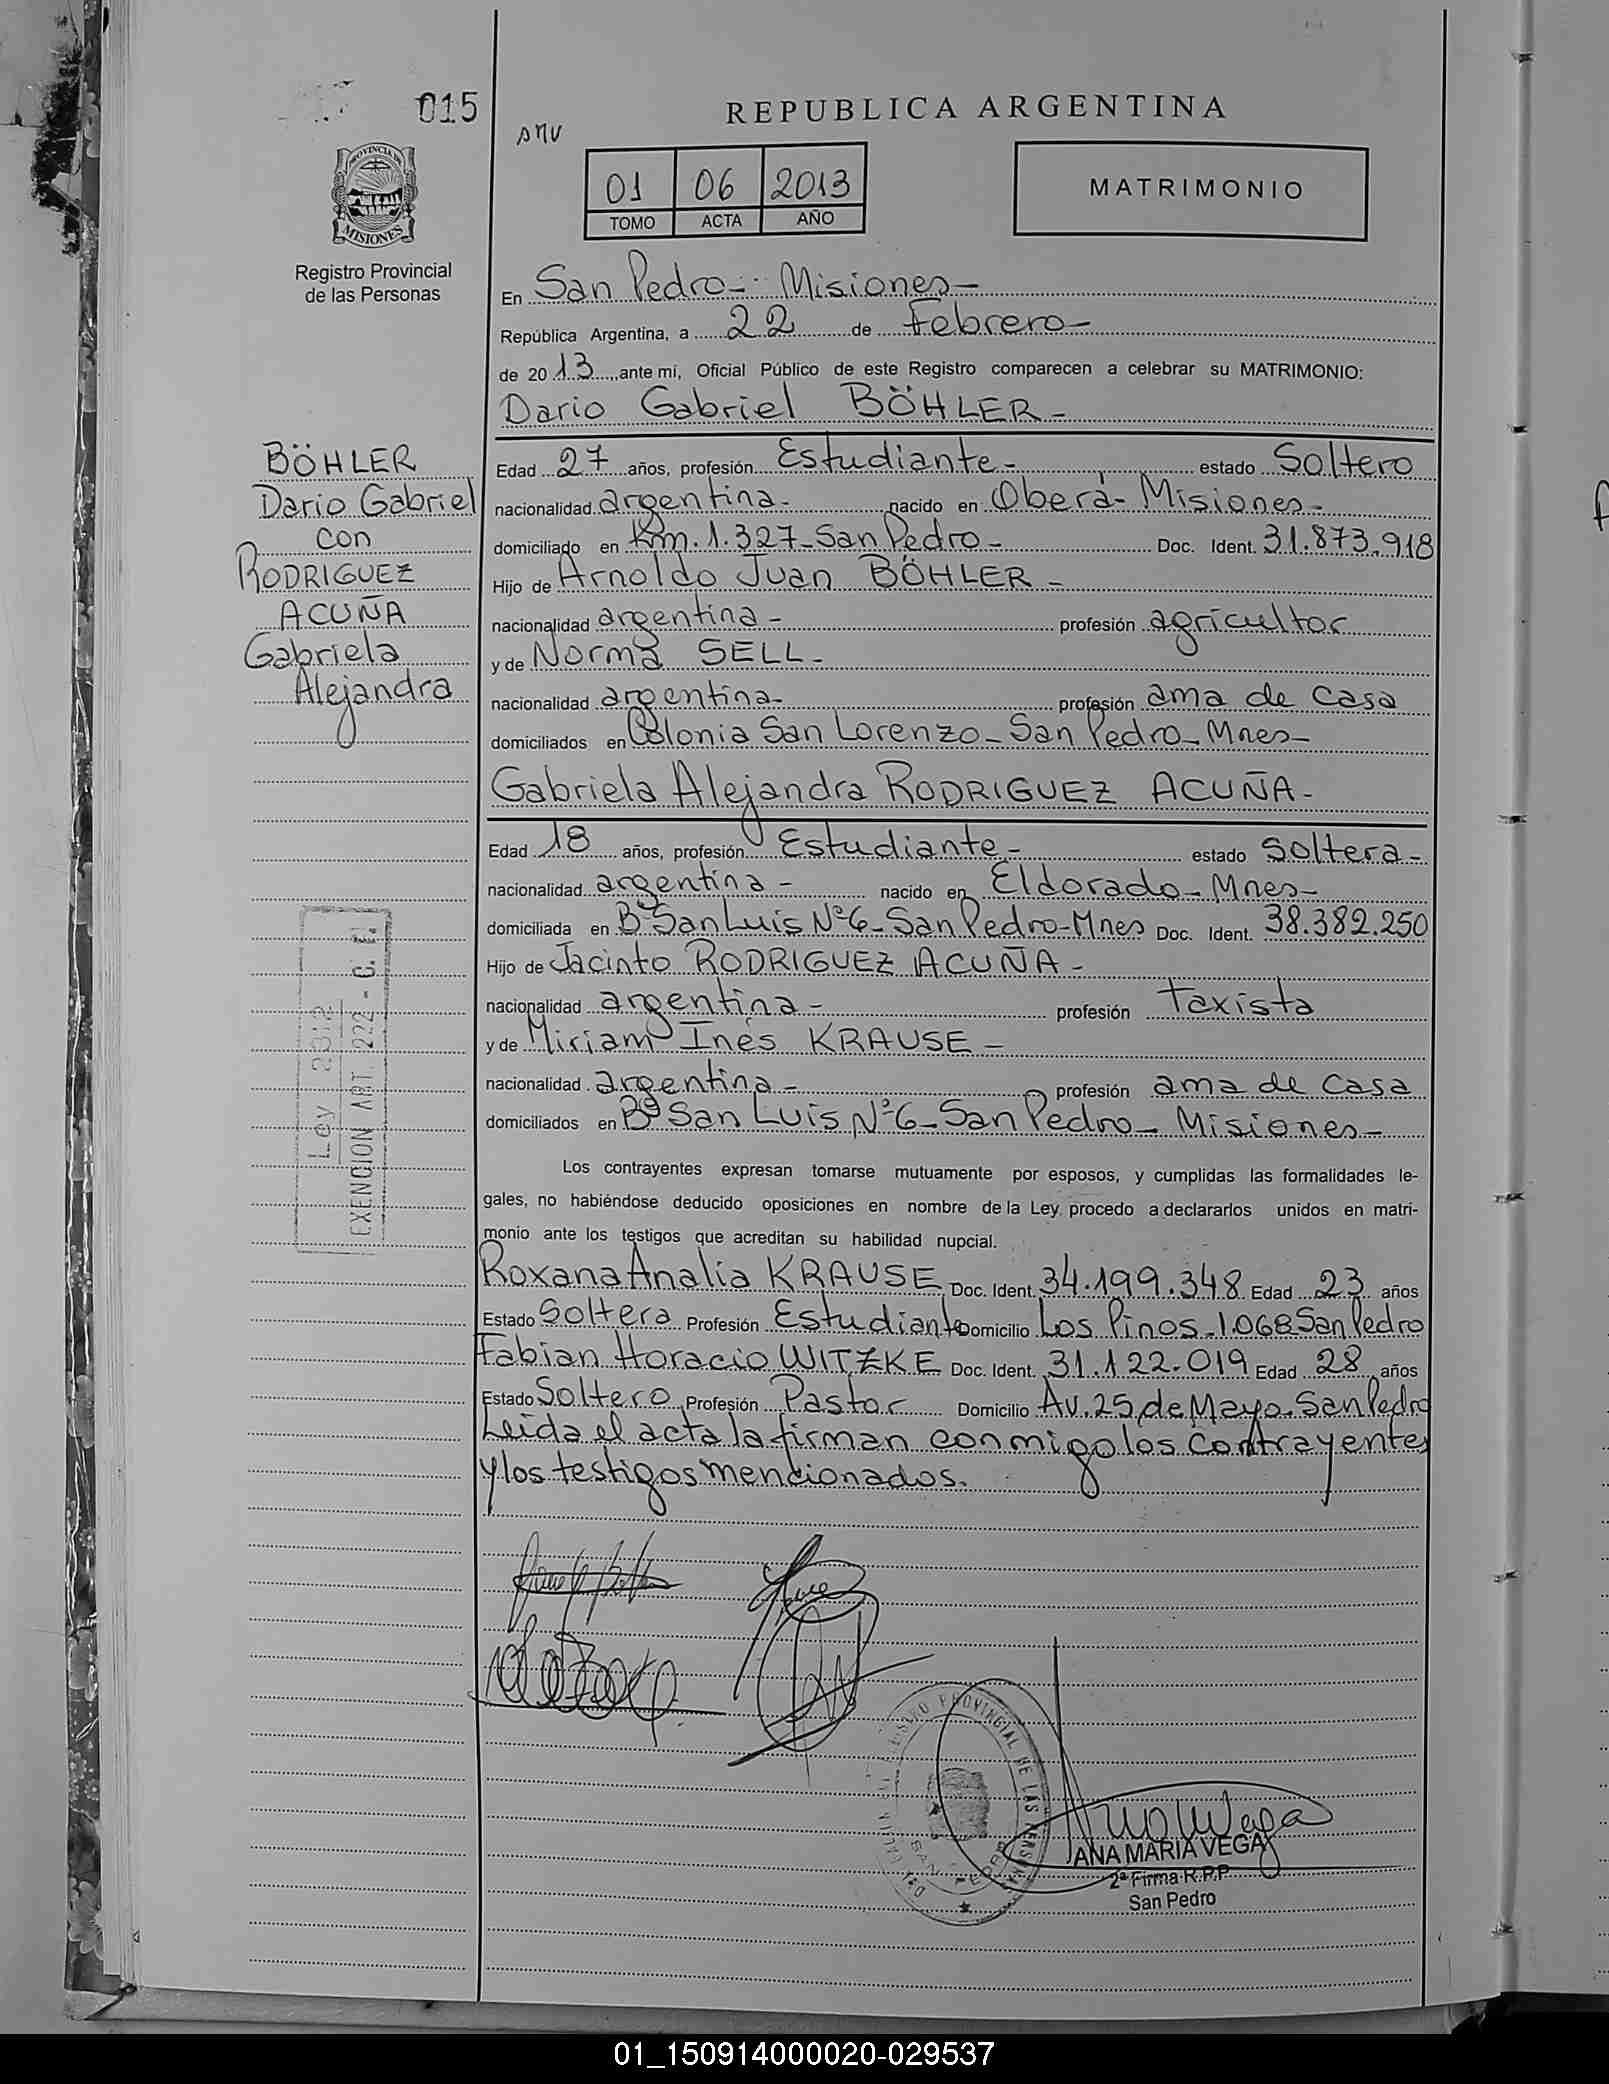 015
AMV
REPUBLICA ARGENTINA
01 06 2013
TOMO ACTA AÑO
MATRIMONIO
PROVINCIA DE
MISIONES
Registro Provincial
de las Personas
En San Pedro - Misiones-
República Argentina, a 22 de Febrero-
de 2013, ante mi, Oficial Público de este Registro comparecen a celebrar su MATRIMONIO:
Dario Gabriel BÖHLER-
BÖHLER
Dario Gabriel
con
RODRIGUEZ
ACUÑA
Gabriela
Alejandra
Edad 27 años, profesión Estudiante- estado Soltero
nacionalidad argentina- nacido en Oberá- Misiones-
domiciliado en Km. 1.327-San Pedro- Doc. Ident. 31.873.918
Hijo de Arnoldo Juan BÖHLER-
nacionalidad argentina- profesión agricultor
y de Norma SELL-
nacionalidad argentina- profesión ama de casa
domiciliados en Colonia San Lorenzo-San Pedro-Mnes-
Gabriela Alejandra RODRIGUEZ ACUÑA-
Edad 18 años, profesión Estudiante- estado Soltera-
nacionalidad argentina- nacido en Eldorado-Mnes-
domiciliada en Bº San Luis Nº6-San Pedro-Mnes Doc. Ident. 38.382.250
Hijo de Jacinto RODRIGUEZ ACUÑA-
nacionalidad argentina- profesión taxista
y de Miriam Inés KRAUSE-
nacionalidad argentina- profesión ama de casa
domiciliados en Bº San Luis Nº6-San Pedro-Misiones-
Ley 2312
EXENCION ART. 222 - C. F.
Los contrayentes expresan tomarse mutuamente por esposos, y cumplidas las formalidades le-
gales, no habiéndose deducido oposiciones en nombre de la Ley, procedo a declararlos unidos en matri-
monio ante los testigos que acreditan su habilidad nupcial.
Roxana Analía KRAUSE Doc. Ident. 34.199.348 Edad 23 años
Estado Soltera Profesión Estudiante Domicilio Los Pinos-1.068 San Pedro
Fabian Horacio WITZKE Doc. Ident. 31.122.019 Edad 28 años
Estado Soltero Profesión Pastor Domicilio Av. 25 de Mayo-San Pedro
Leída el acta la firman conmigo los contrayentes
y los testigos mencionados.
PROVINCIAL DE LAS PERSONAS
SAN PEDRO
ANA MARIA VEGA
2ª Firma R.P.P
San Pedro
01_150914000020-029537